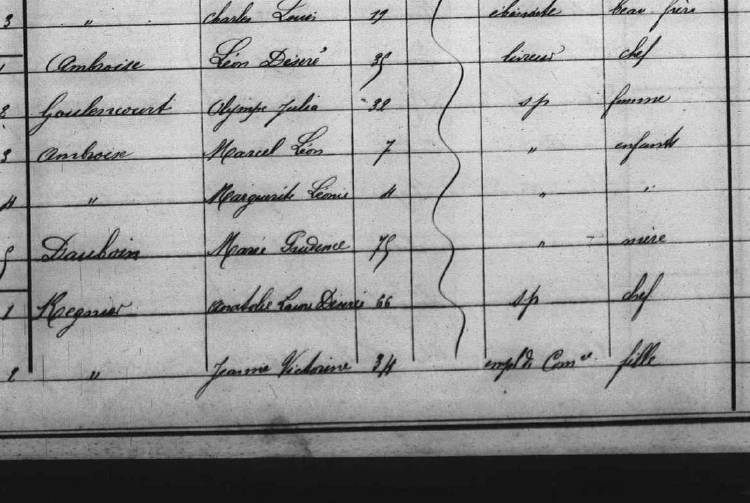 3 " Charles Louis 19 ébéniste beau frère
1 Ambroise Léon Désiré 35 livreur chef
2 Goulencourt Olympe Julia 32 sp femme
3 Ambroise Marcel Léon 7 " enfants
4 " Marguerite Léonie 4 " "
5 Dauboin Marie Prudence 75 " mère
1 Regnier Anatolie Laure Désirée 66 sp chef
2 " Jeanne Victorine 34 empl de Com ce fille